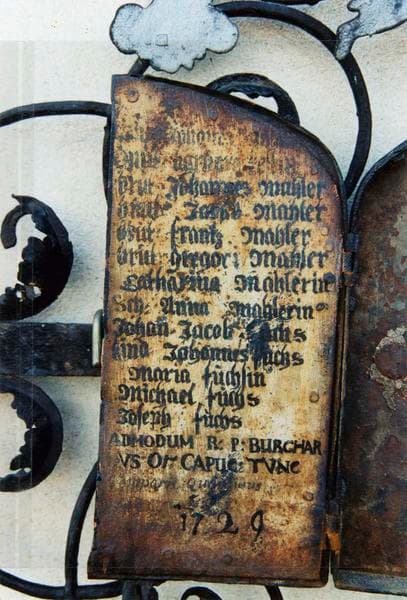 Brut Johannes Mahler
Brut Jacob Mahler
Brut frantz Mahler
Brut gregori Mahler
Catharina Mahlerin
Sch: Anna Mahlerin
Johan Jacob fuchs
Und Johannes fuchs
Maria fuchsin
Michael fuchs
Joseph fuchs
ADMODUM R: P: BURCHAR
VS Or CAPUC: TVNC
1729